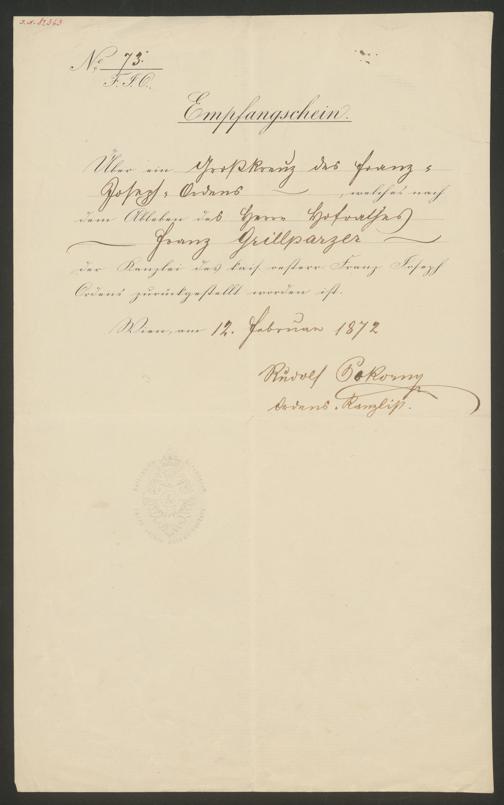 No 73.
F. J. O.
Empfangschein.
Über ein Großkreuz des Franz=
Joseph=Ordens, welches nach
dem Ableben des Herrn Hofrathes
Franz Grillparzer
der Kanzlei des kais. oesterr. Franz Joseph
Ordens zurückgestellt worden ist.
Wien, am 12. Februar 1872
Rudolf Pokorny
Ordens-Kanzlist.